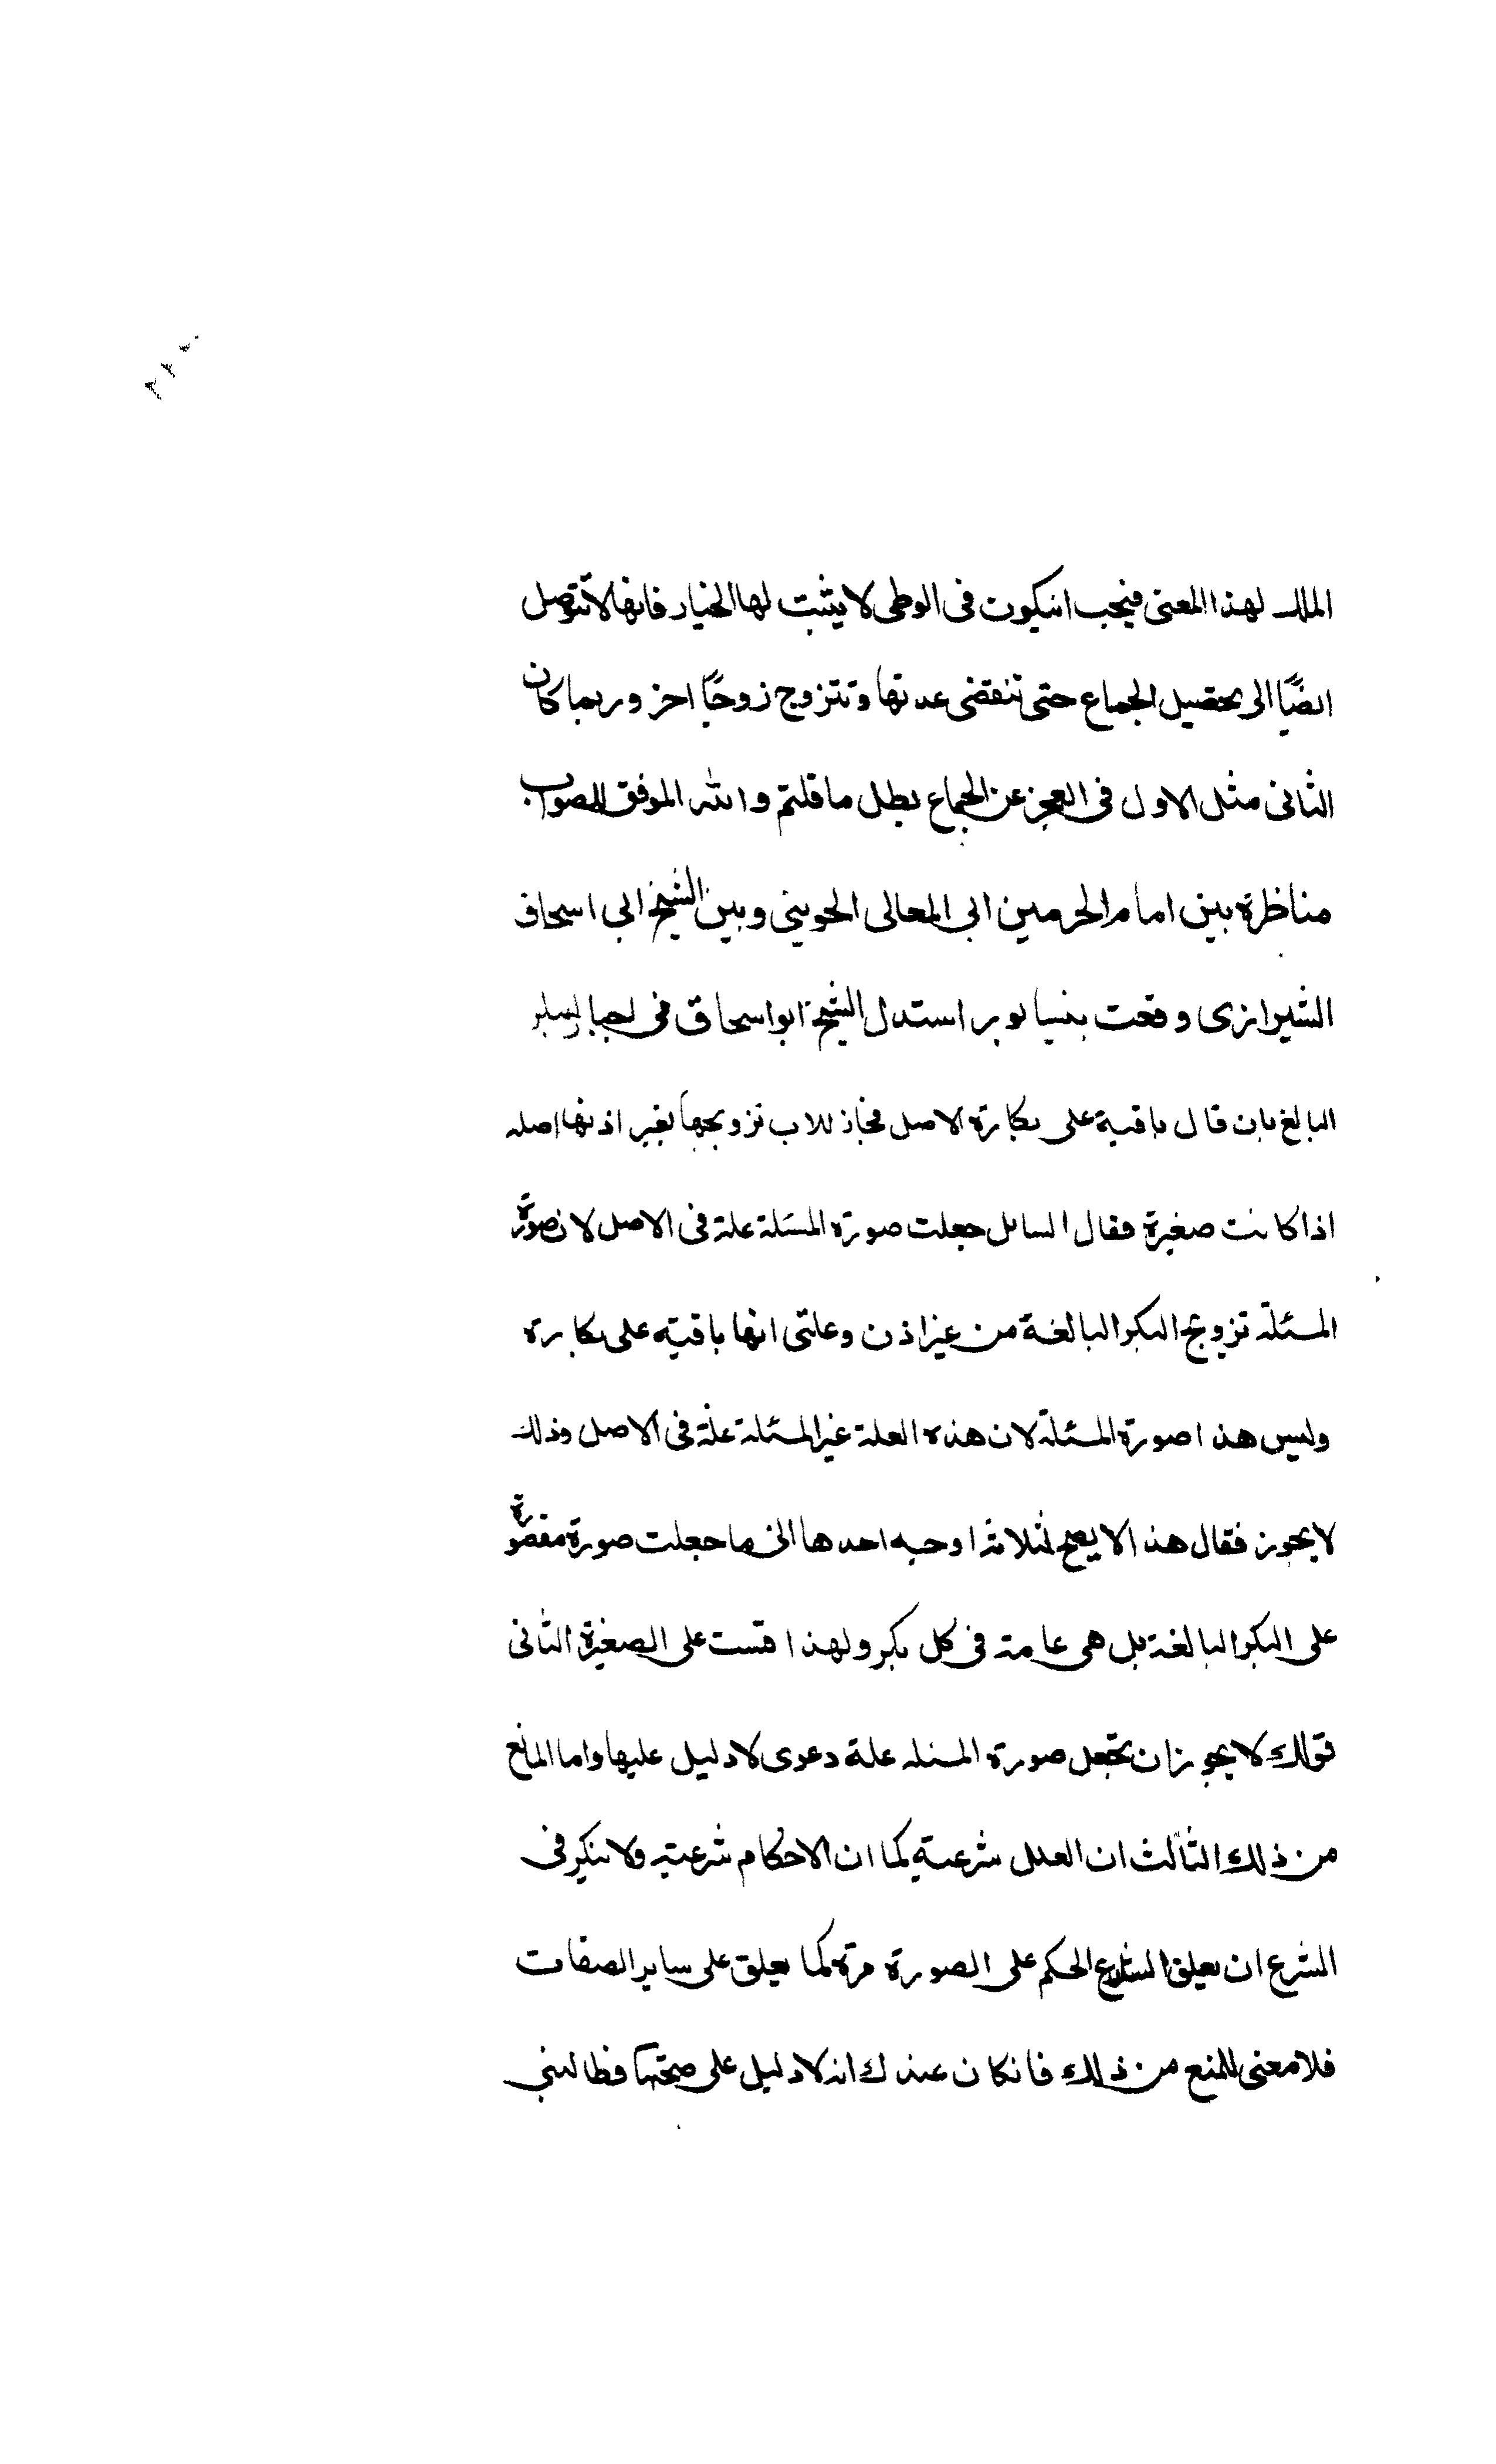 الملك لهذا المعنى فيجب انيكون فى الوطى لا يثبت لها الخيار فانها لا تتوصل
ايضًا الى تحصيل الجماع حتى تنقضى عدتها وتتزوج زوجًا اخر وربما كان
الثانى مثل الاول فى العجز عن الجماع بطل ما قلتم والله الموفق للصواب
مناظرة بين امام الحرمين ابى المعالى الجوينى وبين الشيخ ابى اسحاق
الشيرازى وقعت بنيسابور استدل الشيخ ابو اسحاق فى
البالغ بان قال باقية على بكارة الاصل فجاز للاب تزويجها بغير اذنها اصله
اذا كانت صغيرة فقال السايل جعلت صورة المسئلة علة فى الاصل لان صورة
المسئلة تزويج البكر البالغة من غير اذن وعلتى انها باقية على بكارة
وليس هذا صورة المسئلة لان هذه العلة غير المسئلة علة فى الاصل وذلك
لا يجوز فقال هذا لا يصح لثلاثة اوجه احدها انى ما جعلت صورة مقصورة
على البكر البالغة بل هى عامة فى كل بكر ولهذا قست على الصغيرة الثانى
قولك لا يجوز ان تجعل صورة المسئله علة دعوى لا دليل عليها واما المانع
من ذلك الثالث ان العلل شرعية كما ان الاحكام شرعية ولا ننكر فى
الشرع ان يعلق الشارع الحكم على الصورة مرة كما يعلق على ساير الصفات
فلا معنى للمنع من ذلك فان كان عندك انه لا دليل على صحتها فطالبنى